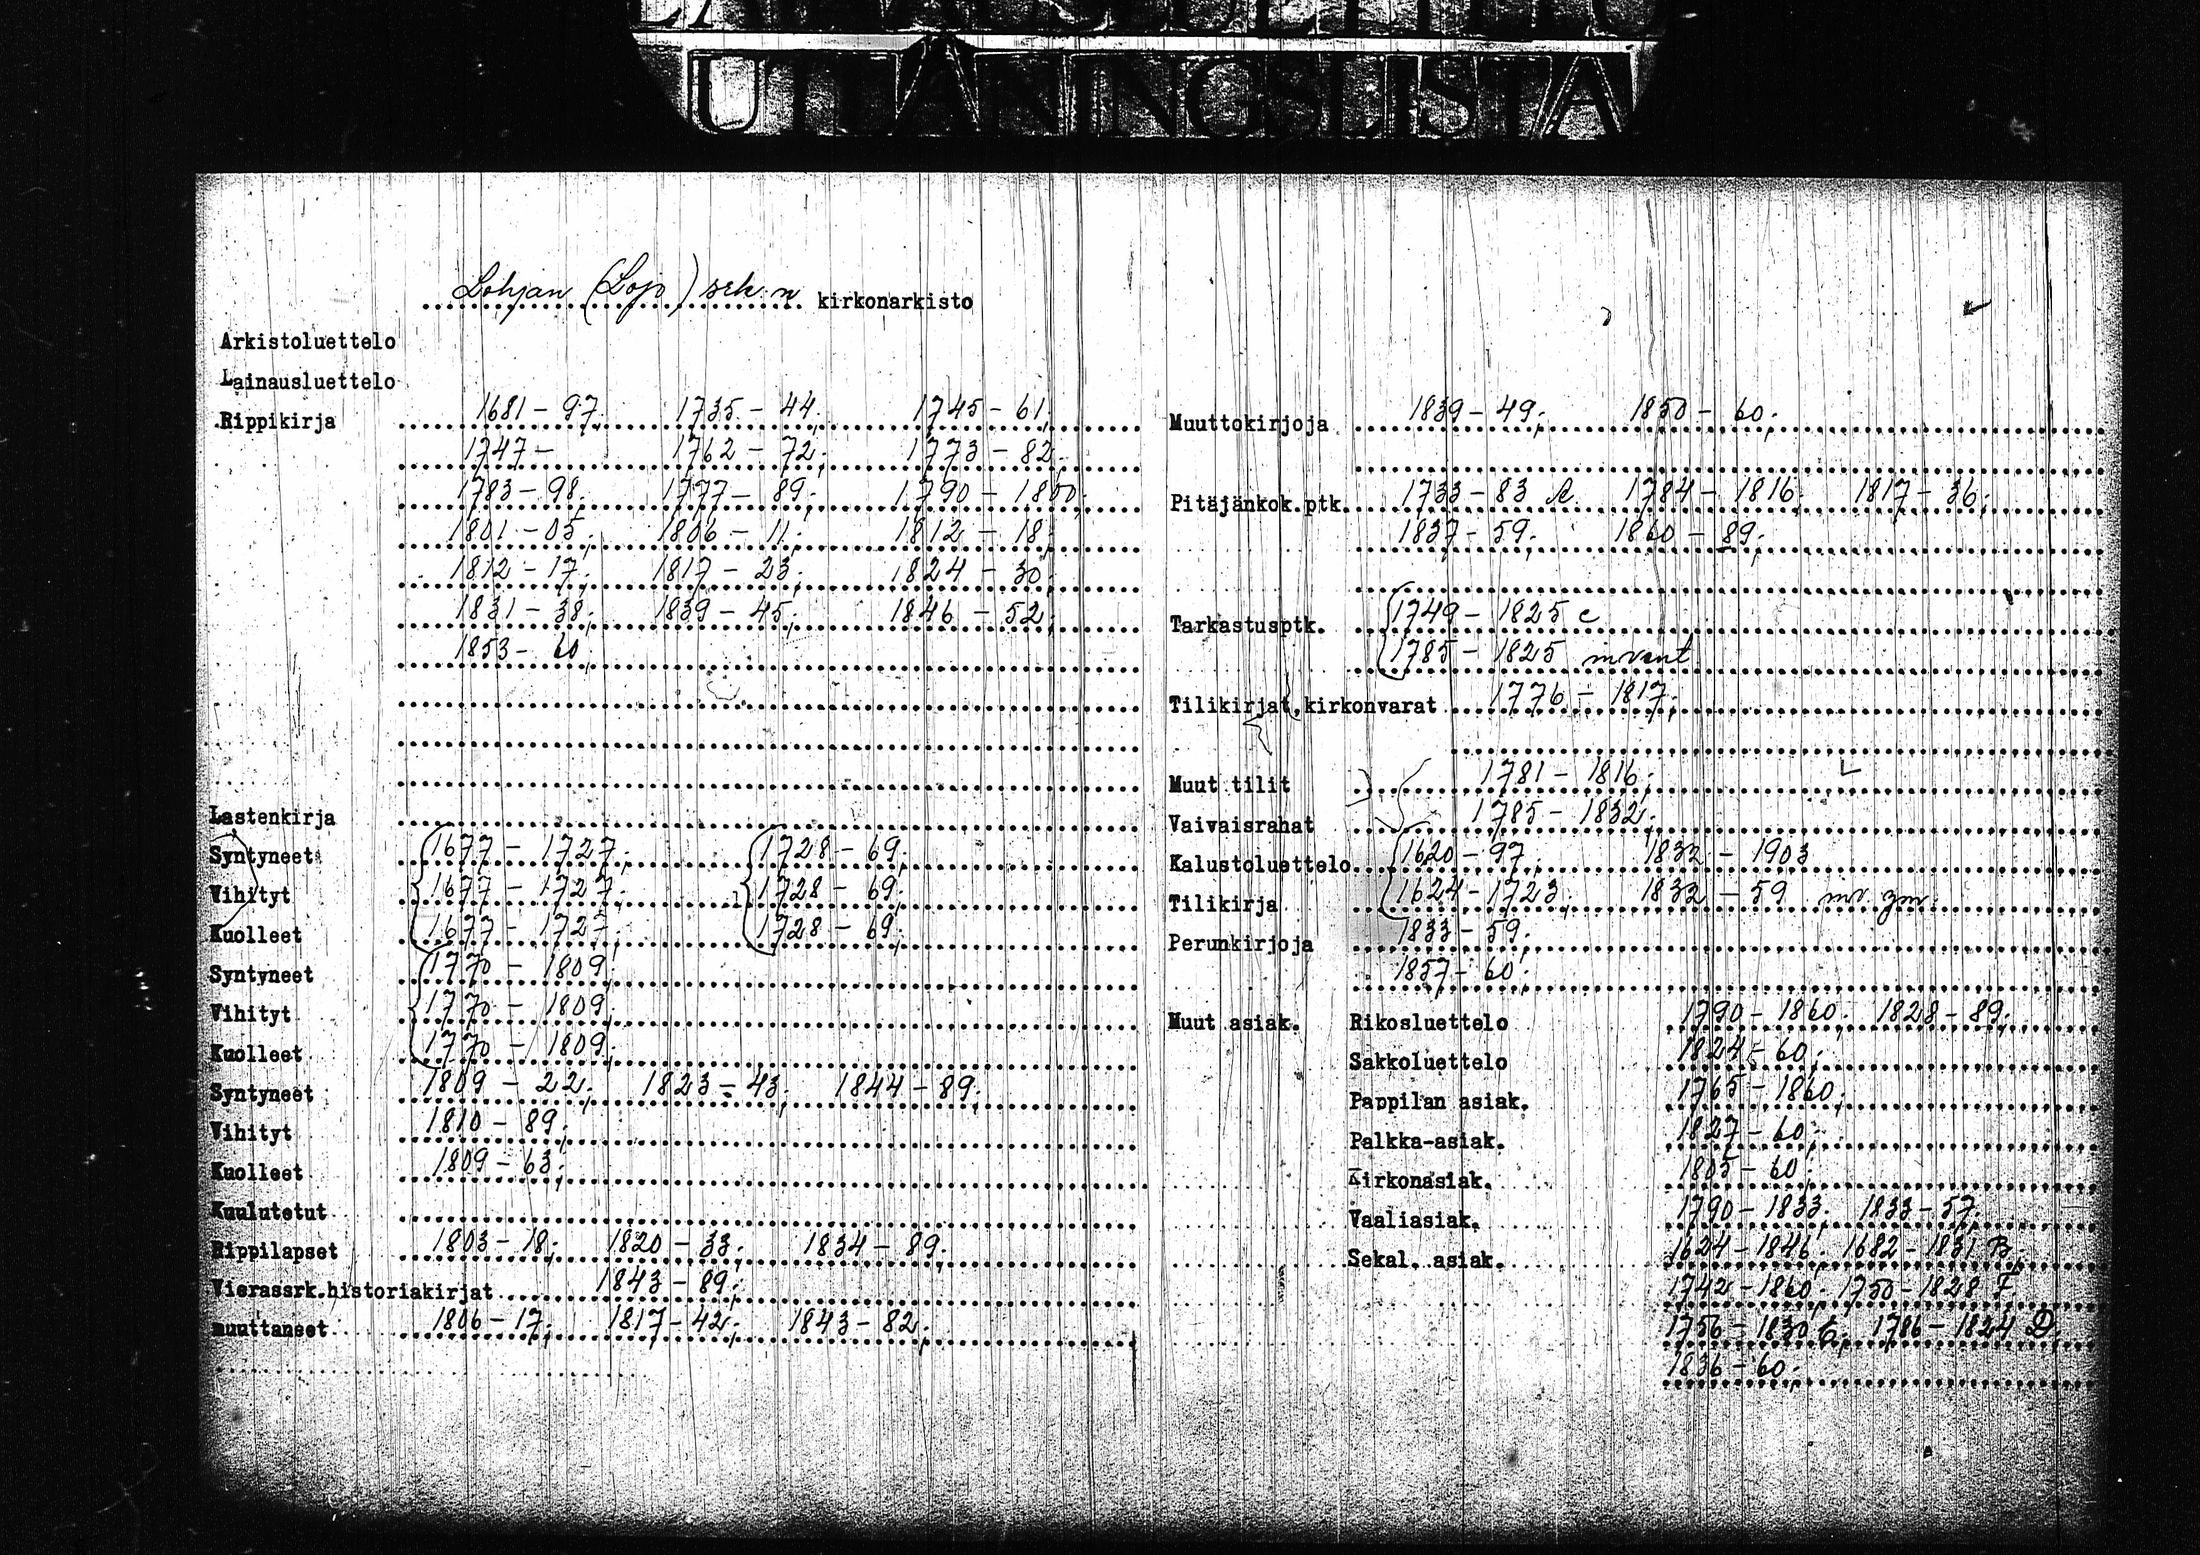 LAINAUSLUETTELO
UTLÅNINGSLISTA
Lohjan (Lojo) srk:n kirkonarkisto
Arkistoluettelo
Lainausluettelo
Rippikirja 1681-97; 1735-44; 1745-61;
1747- 1762-72; 1773-82.
1783-98; 1777-89; 1790-1800;
1801-05; 1806-11; 1812-18;
1812-17; 1817-23; 1824-30;
1831-38; 1839-45; 1846-52;
1853-60;
Lastenkirja
Syntyneet 1677-1727; 1728-69;
Vihityt 1677-1727; 1728-69;
Kuolleet 1677-1727; 1728-69;
Syntyneet 1770-1809;
Vihityt 1770-1809;
Kuolleet 1770-1809;
Syntyneet 1809-22; 1823-43; 1844-89;
Vihityt 1810-89;
Kuolleet 1809-63;
Kuulutetut
Rippilapset 1803-18; 1820-33; 1834-89;
Vierassrk.historiakirjat 1843-89;
muuttaneet 1806-17; 1817-42; 1843-82;
Muuttokirjoja 1839-49; 1850-60;
Pitäjänkok.ptk. 1733-83 A. 1784-1816; 1817-36;
1837-59; 1860-89;
Tarkastusptk. 1749-1825 c
1785-1825
Tilikirjat, kirkonvarat 1776-1817;
Muut tilit 1781-1816;
Vaivaisrahat 1785-1832;
Kalustoluettelo 1620-97; 1832-1903
Tilikirja 1624-1723; 1832-59
Perunkirjoja 1833-59;
1857-60;
Muut asiak. Rikosluettelo 1790-1860; 1828-89;
Sakkoluettelo 1824-60;
Pappilan asiak. 1765-1860;
Palkka-asiak. 1827-60;
Kirkonasiak. 1805-60;
Vaaliasiak. 1790-1833; 1833-57;
Sekal. asiak. 1624-1846; 1682-1831 B;
1742-1860; 1750-1828 F
1756-1830 E; 1786-1824 D
1836-60;